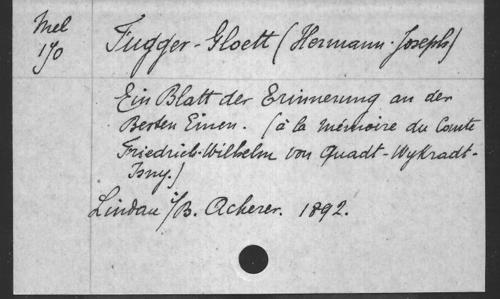 Mel
170
Fugger-Gloett (Hermann-Joseph)
Ein Blatt der Erinnerung an der
Besten Einen. (à la mémoire du Comte
Friedrich-Wilhelm von Quadt-Wykradt-
Isny.)
Lindau i/B. Acherer. 1892.